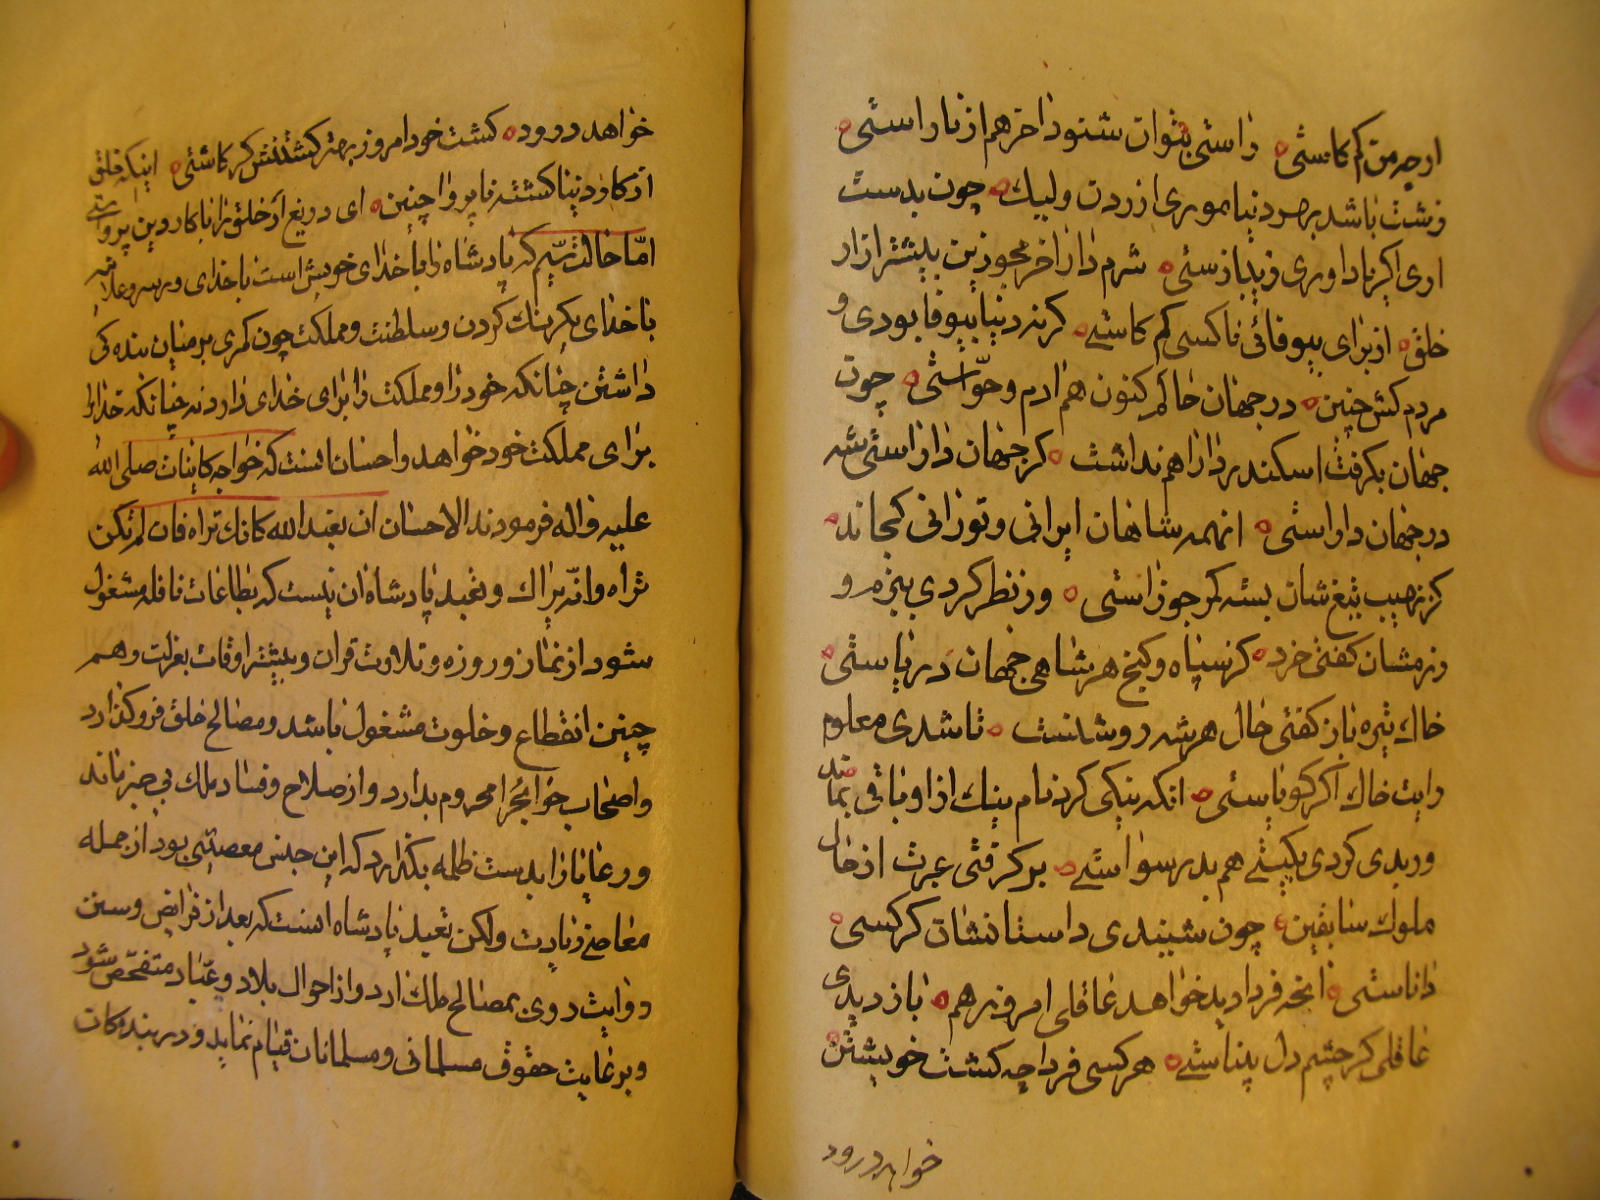 ارچه من کم کاستی ه راستی بتوان شنود اخر هم از ناراستی ه
زشت باشد بهر دنیا موری ازردن ولیک ه چون بدست
اری اکر با داوری زیبا زستی ه شرم دار اخر مجو زین بیشتر ازار
خلق ه از برای بیوفائی ناکسی کم کاستی ه کرنه دنیا بیوفا بودی و
مردم کش چنین ه در جهان حاکم کنون هم ادم و حوّاستی ه چون
جهان بکرفت اسکندر دارا هم نداشت ه کر جهان دار راستی شه
در جهان داراستی ه انهمه شاهان ایرانی و تورانی کجاند ه
کز نهیب تیغ شان بسته کمر جوزاستی ه ور نظر کردی ببزم و
رزمشان کفتی خرد ه کز سپاه و کنج هر شاهی جهان دریاستی ه
خاک تیره باز کفتی حال هر شه روشنست ه تا شدی معلوم
رایت خاک اکر کویاستی ه انکه نیکی کرد نام نیک از او باقی بماند
ور بدی کردی بکیتی هم بد رسواستی ه بر کرفتی عبرت از حال
ملوک سابقین ه چون شنیدی داستانشان کر کسی ه
داناستی ه انچه فردا دید خواهد غافلی امروز هم ه باز دیدی
غافلی کر چشم دل بیناستی ه هر کسی فردا چه کشت خویشتن ه
خواهد درود
خواهد درود ه کشت خود امروز بهتر کشتنش کر کاشتی ه اینکه خلق
از کار دنیا کشته ناپروا چنین ه ای دریغ ار خلق را با کار دین پرواستی
امّا حالت سیّم که پادشاه را با خدای خویش است با خدای در سر و علانیه
با خدای بکرینک کردن و سلطنت و مملکت چون کمری بر میان بنده کی
داشتن چنانکه خود را و مملکت را برای خدای دارد نه چنانکه خدا را
برای مملکت خود خواهد و احسان انست که خواجه کاینات صلی الله
علیه واله فرمودند الاحسان ان تعبد الله کانک تراه فان لم تکن
تراه وانّه یراک و تعبد پادشاه ان نیست که بطاعات نافله مشغول
شود از نماز و روزه و تلاوت قران و بیشتر اوقات بعزلت و هم
چنین انقطاع و خلوت مشغول باشد و مصالح خلق فرو کذارد
و اصحاب حوایج را محروم بدارد و از صلاح و فساد ملک بی خبر ماند
و رعایا را بدست ظلمه بکذارد که این جنس معصیتی بود از جمله
معاصی زیادت ولکن تعبد پادشاه انست که بعد از فرایض و سنن
رواتب روی بمصالح ملک ارد و از احوال بلاد و عباد متفحّص شود
و برعایت حقوق مسلمانی و مسلمانان قیام نماید و در بند مکات